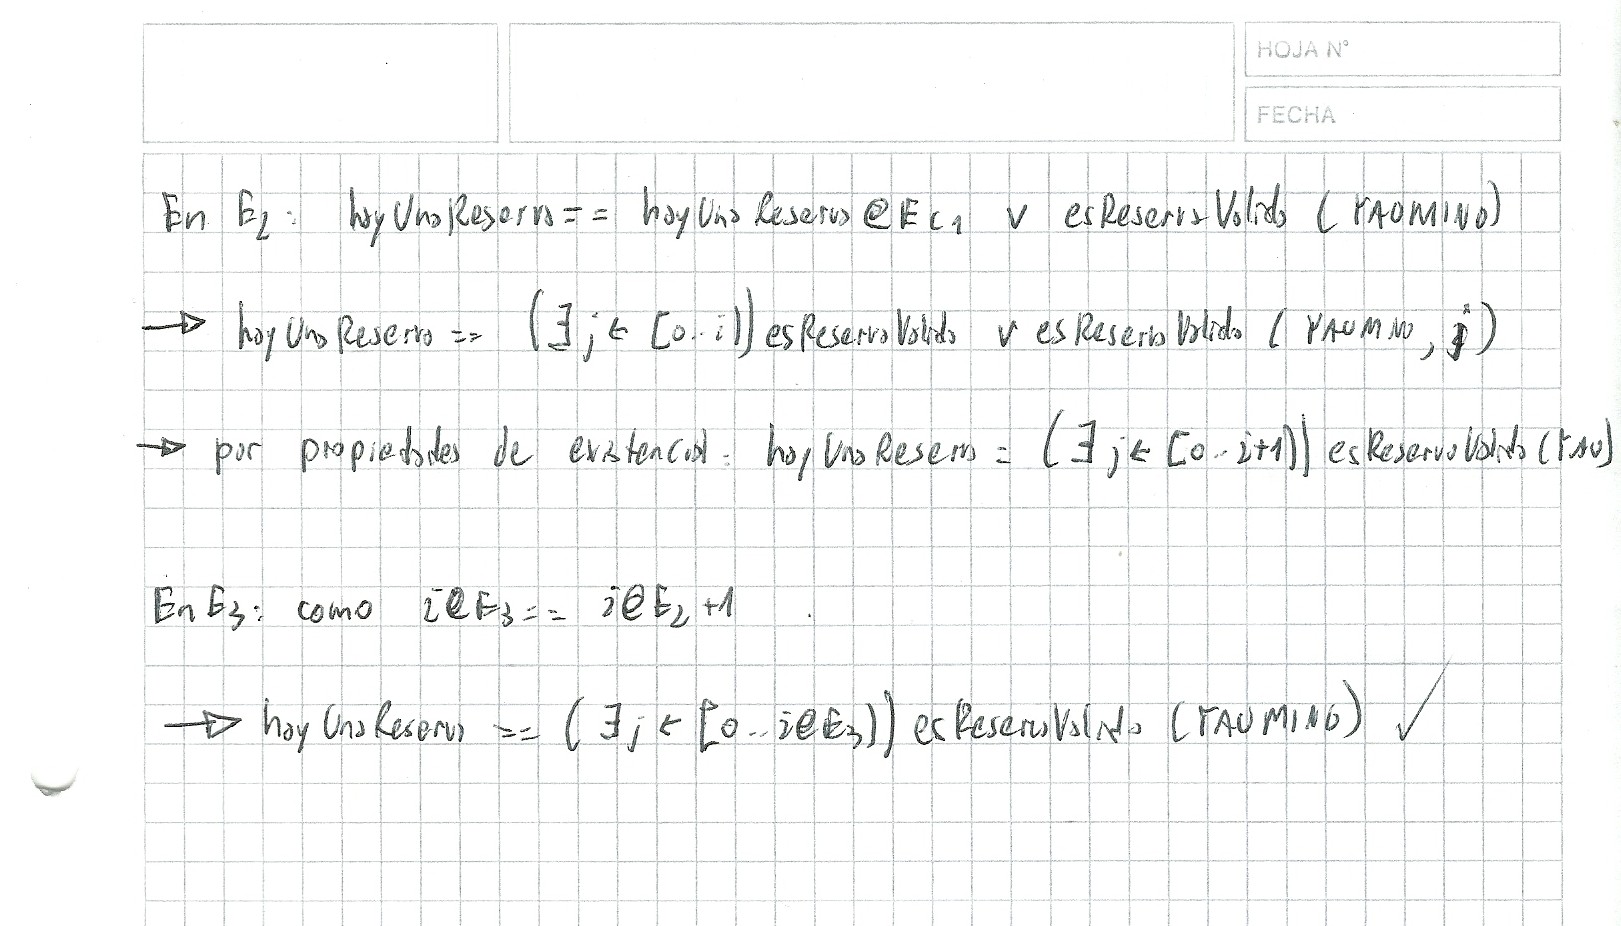 HOJA N°
FECHA
En E2: hayUnaReserva == hayUnaReserva@EC1 ∨ esReservaValida (YAOMINO)
→ hayUnaReserva == (∃ j ∈ [0..i)) esReservaValida ∨ esReservaValida (YAOMINO, j)
→ por propiedades de existencial: hayUnaReserva = (∃ j ∈ [0..i+1)) esReservaValida (YAO)
En E3: como i@E3 == i@E2 +1
→ hayUnaReserva == (∃ j ∈ [0..i@E3)) esReservaValida (YAOMINO) ✓